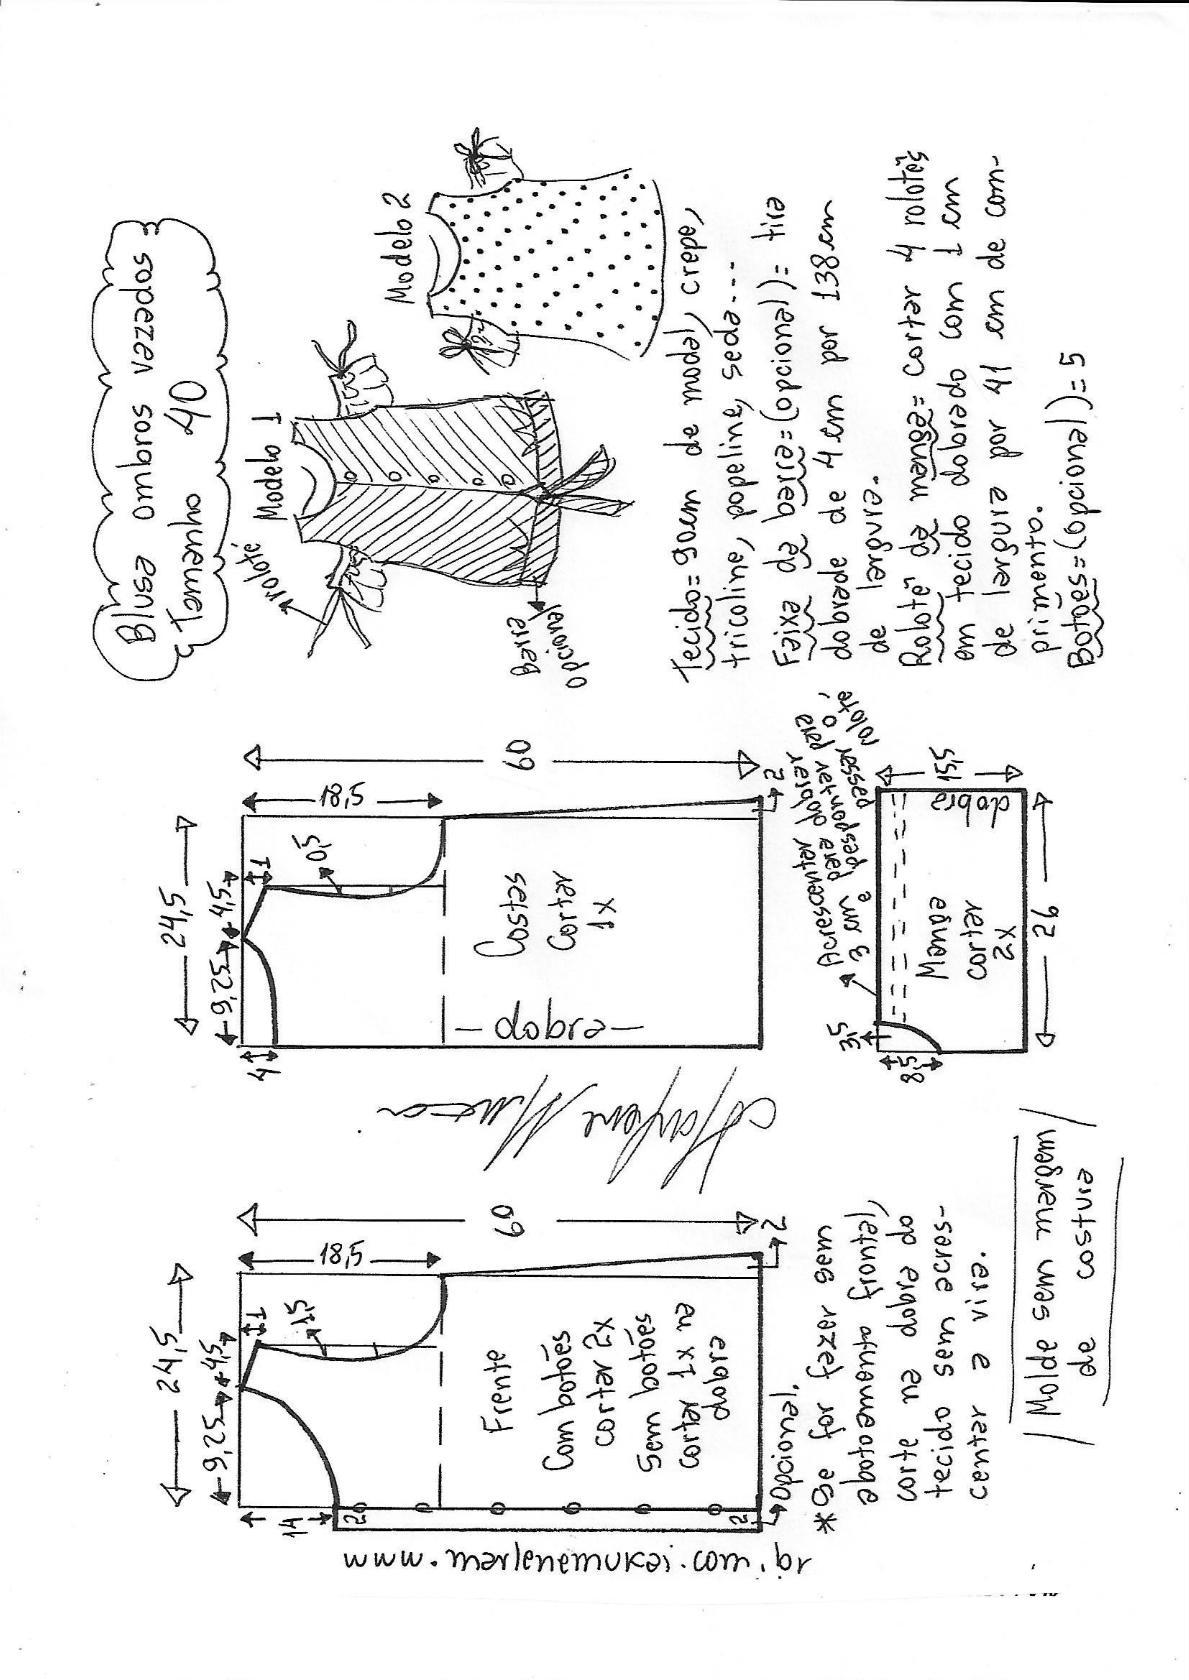 www.marlenemukai.com.br
24,5
9,25
4,5
1
14
18,5
1,5
60
Frente
Com botões
cortar 2x
Sem botões
cortar 1x na
dobra
2
2
2
opcional.
* Se for fazer sem
abotoamento frontal,
corte na dobra do
tecido sem acres-
centar a vira.
Molde sem margem
de costura
Marlene Mukai
24,5
9,25
4,5
1
4
18,5
0,5
60
Costas
Cortar
1x
- dobra -
2
Acrescentar
3 cm para dobrar
e pespontar para
passar o
rolotê
3,5
8,5
Manga
cortar
2x
dobra
15,5
26
Blusa ombros vazados
Tamanho 40
Modelo 1
Modelo 2
rolotê
Barra
opcional
Tecido= 90cm de modal, crepe,
tricoline, popeline, seda...
Faixa da barra=(opcional)= tira
dobrada de 4cm por 138cm
de largura.
Rolotê da manga= cortar 4 rolotês
em tecido dobrado com 1 cm
de largura por 41 cm de com-
primento.
Botões=(opcional)=5